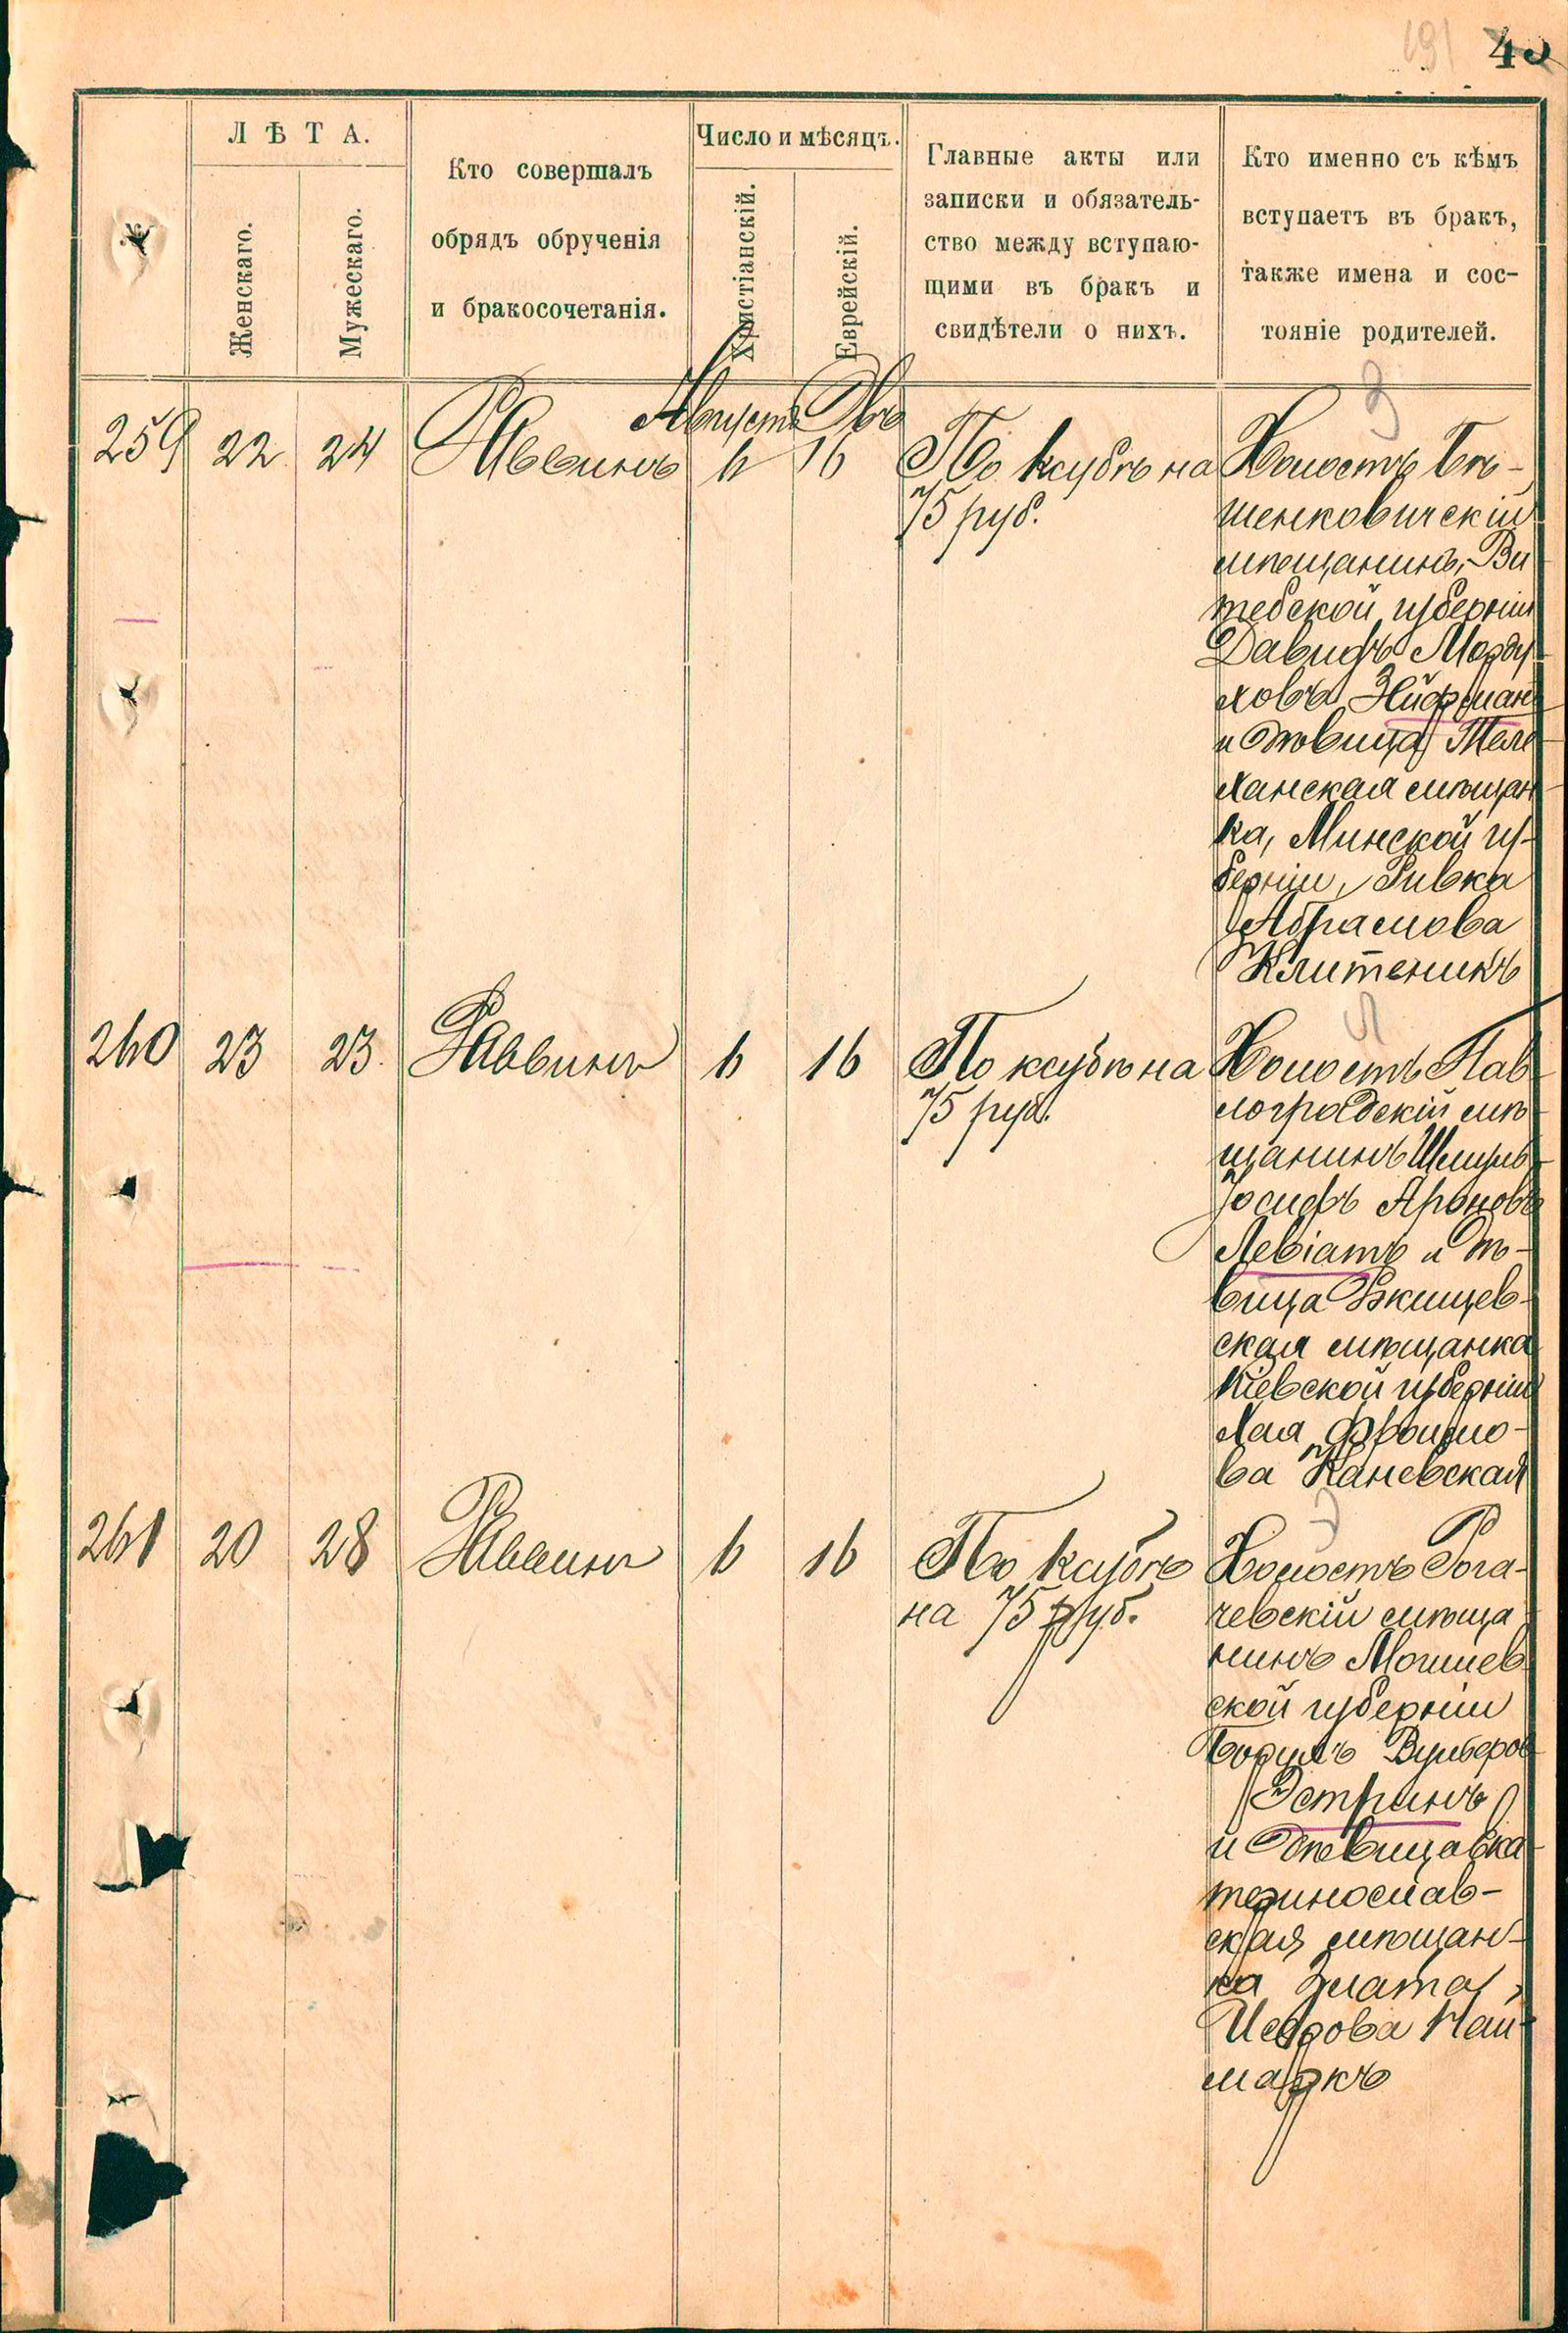 191 45
Л Ѣ Т А.
Женскаго.
Мужескаго.
Кто совершалъ
обрядъ обрученія
и бракосочетанія.
Число и мѣсяцъ.
Христіанскій.
Еврейскій.
Главные акты или
записки и обязатель-
ство между вступаю-
щими въ бракъ и
свидѣтели о нихъ.
Кто именно съ кѣмъ
вступаетъ въ бракъ,
также имена и сос-
тояніе родителей.
Августъ Овъ
259 22 24 Раввинъ 6 16 По ксубѣ на
75 руб.
Холостъ Бѣ-
шенковичскій
мѣщанинъ, Ви
тебской губерніи
Давидъ Морду
ховъ Эйдфман
и дѣвица Теле
ханская мѣщан
ка, Минской гу-
берніи, Ривка
Абрамова
Клитеникъ
260 23 23 Раввинъ 6 16 По ксубѣ на
75 руб.
Холостъ Пав
лоградскій мѣ
щанинъ Шмуль
Іосифъ Ароновъ
Левіатъ и дѣ-
вица Ржищев-
ская мѣщанка
Кіевской губерніи
Хая Фроимо-
ва Каневская
261 20 28 Раввинъ 6 16 По ксубѣ
на 75 руб.
Холостъ Рога-
чевскій мѣща
нинъ Могилев
ской губерніи
Борухъ Вульфов
Эстринъ
и дѣвица Ека
теринослав-
ская мѣщан-
ка Злата
Исерова Най-
маркъ